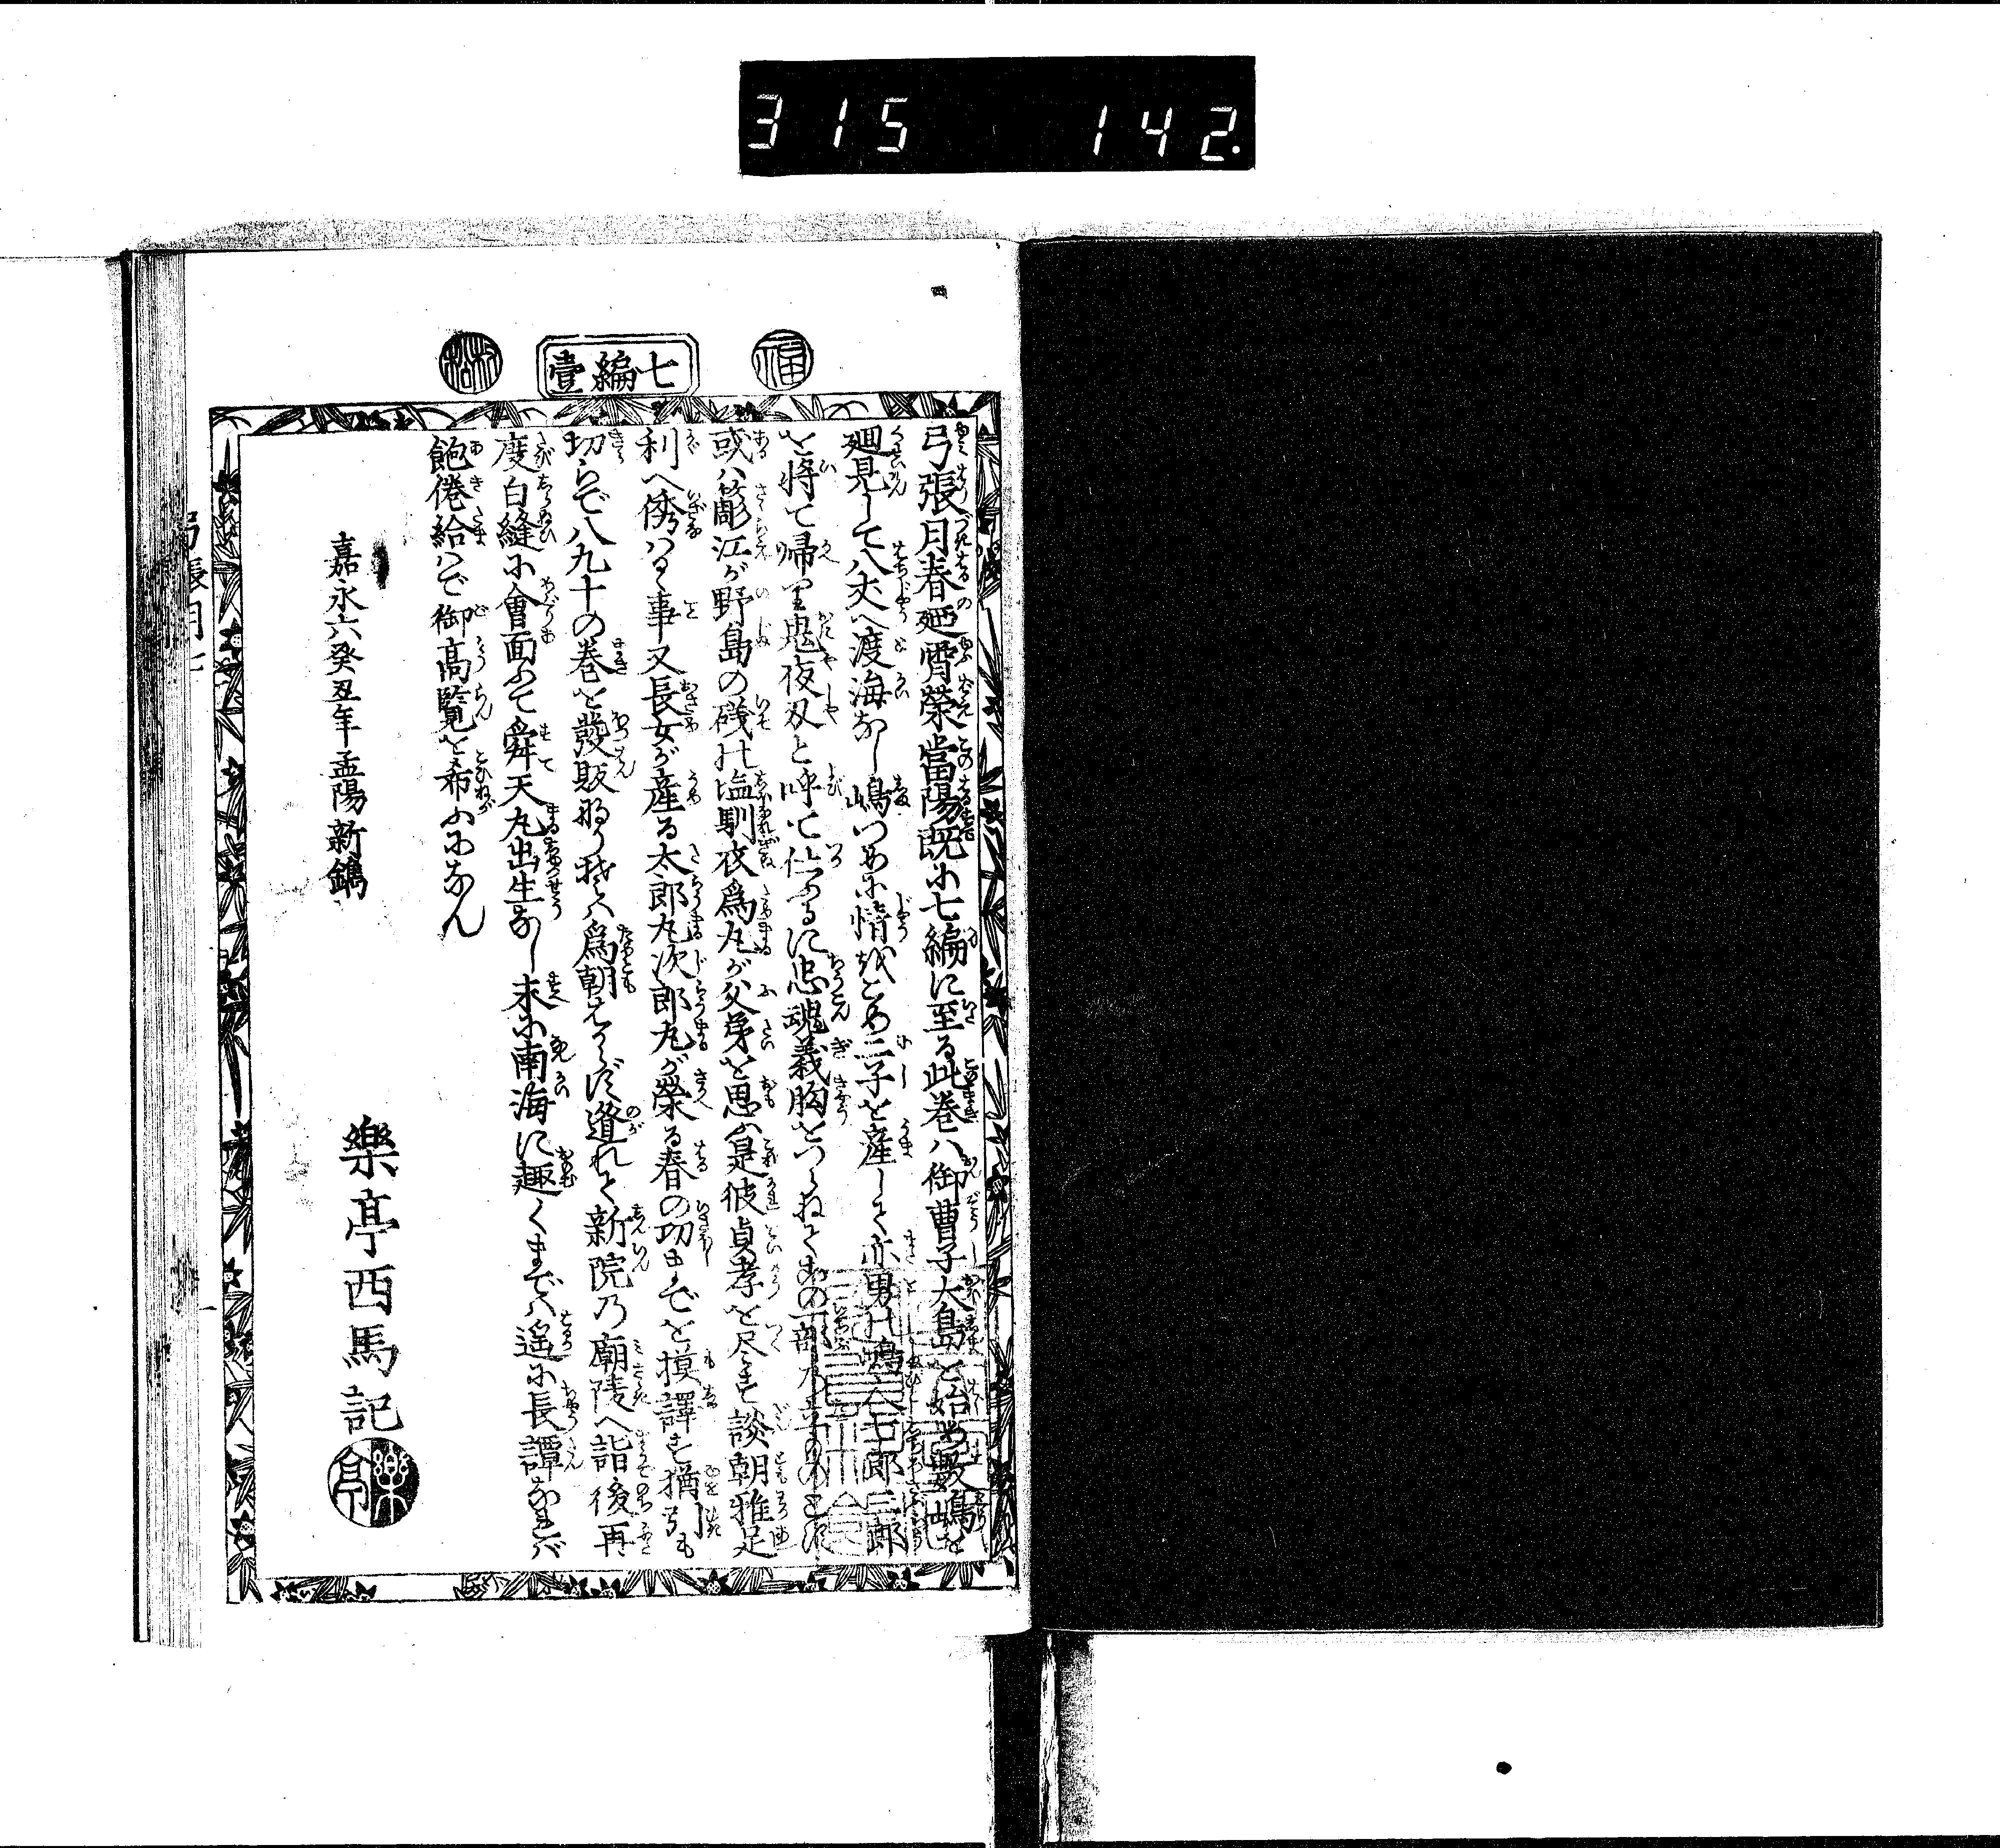 315 142.
福
七編壹
村松
弓張月春廼霄榮當陽既に七編に至る此巻ハ御曹子大島を始め數嶋を
廻見して八丈へ渡海なし嶋つめに情をこめ二子を産して亦男の嶋
を将て帰り鬼夜叉と呼て仕ふるに忠魂義胸をつらねて
或ハ簓江が野島の礒の塩馴衣爲丸が父弟を思ふ是彼貞孝を尽して談朝雅足
利へ倭はる事又長女が産る太郎丸次郎丸が榮る春の功までを摸譯し猶
切らで八九十の巻を發販なり我ハ爲朝からず遁れて新院乃廟陵へ詣後再
度白縫に會面して舜天丸出生なし末に南海に趣くまでハ遥に長譚なれバ
飽倦給はで御髙覧を希ふになん
嘉永六癸丑年孟陽新鐫
樂亭西馬記
樂亭
弓張月七